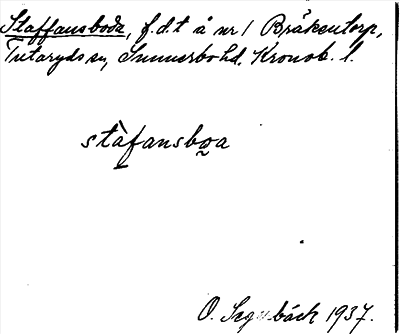 Staffansboda, f.d.t å nr 1 Bråkentorp,
Tutaryds sn, Sunnerbo hd. Kronob. l.
stàfansboa
O. 1937.